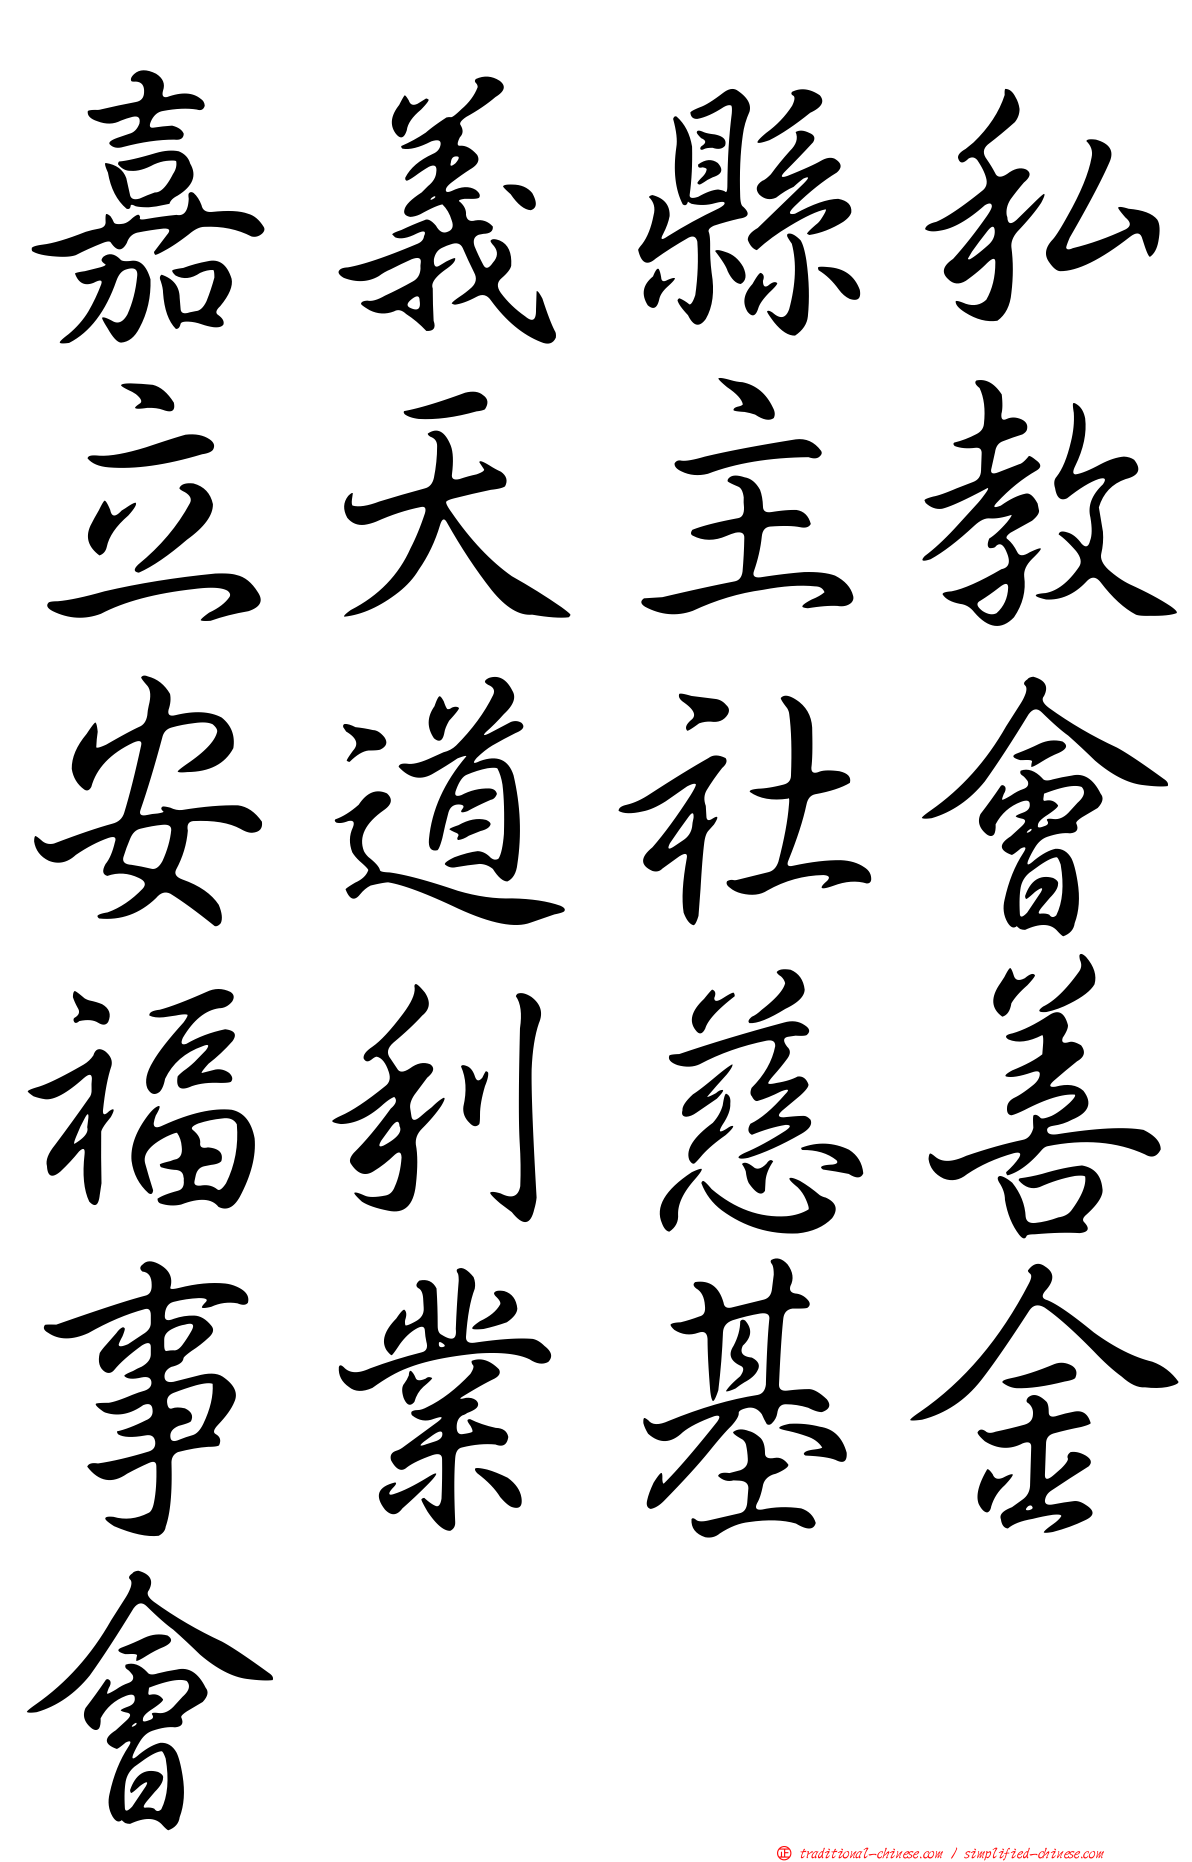 嘉義縣私
立天主教
安道社會
福利慈善
事業基金
會
正 traditional-chinese.com / simplified-chinese.com